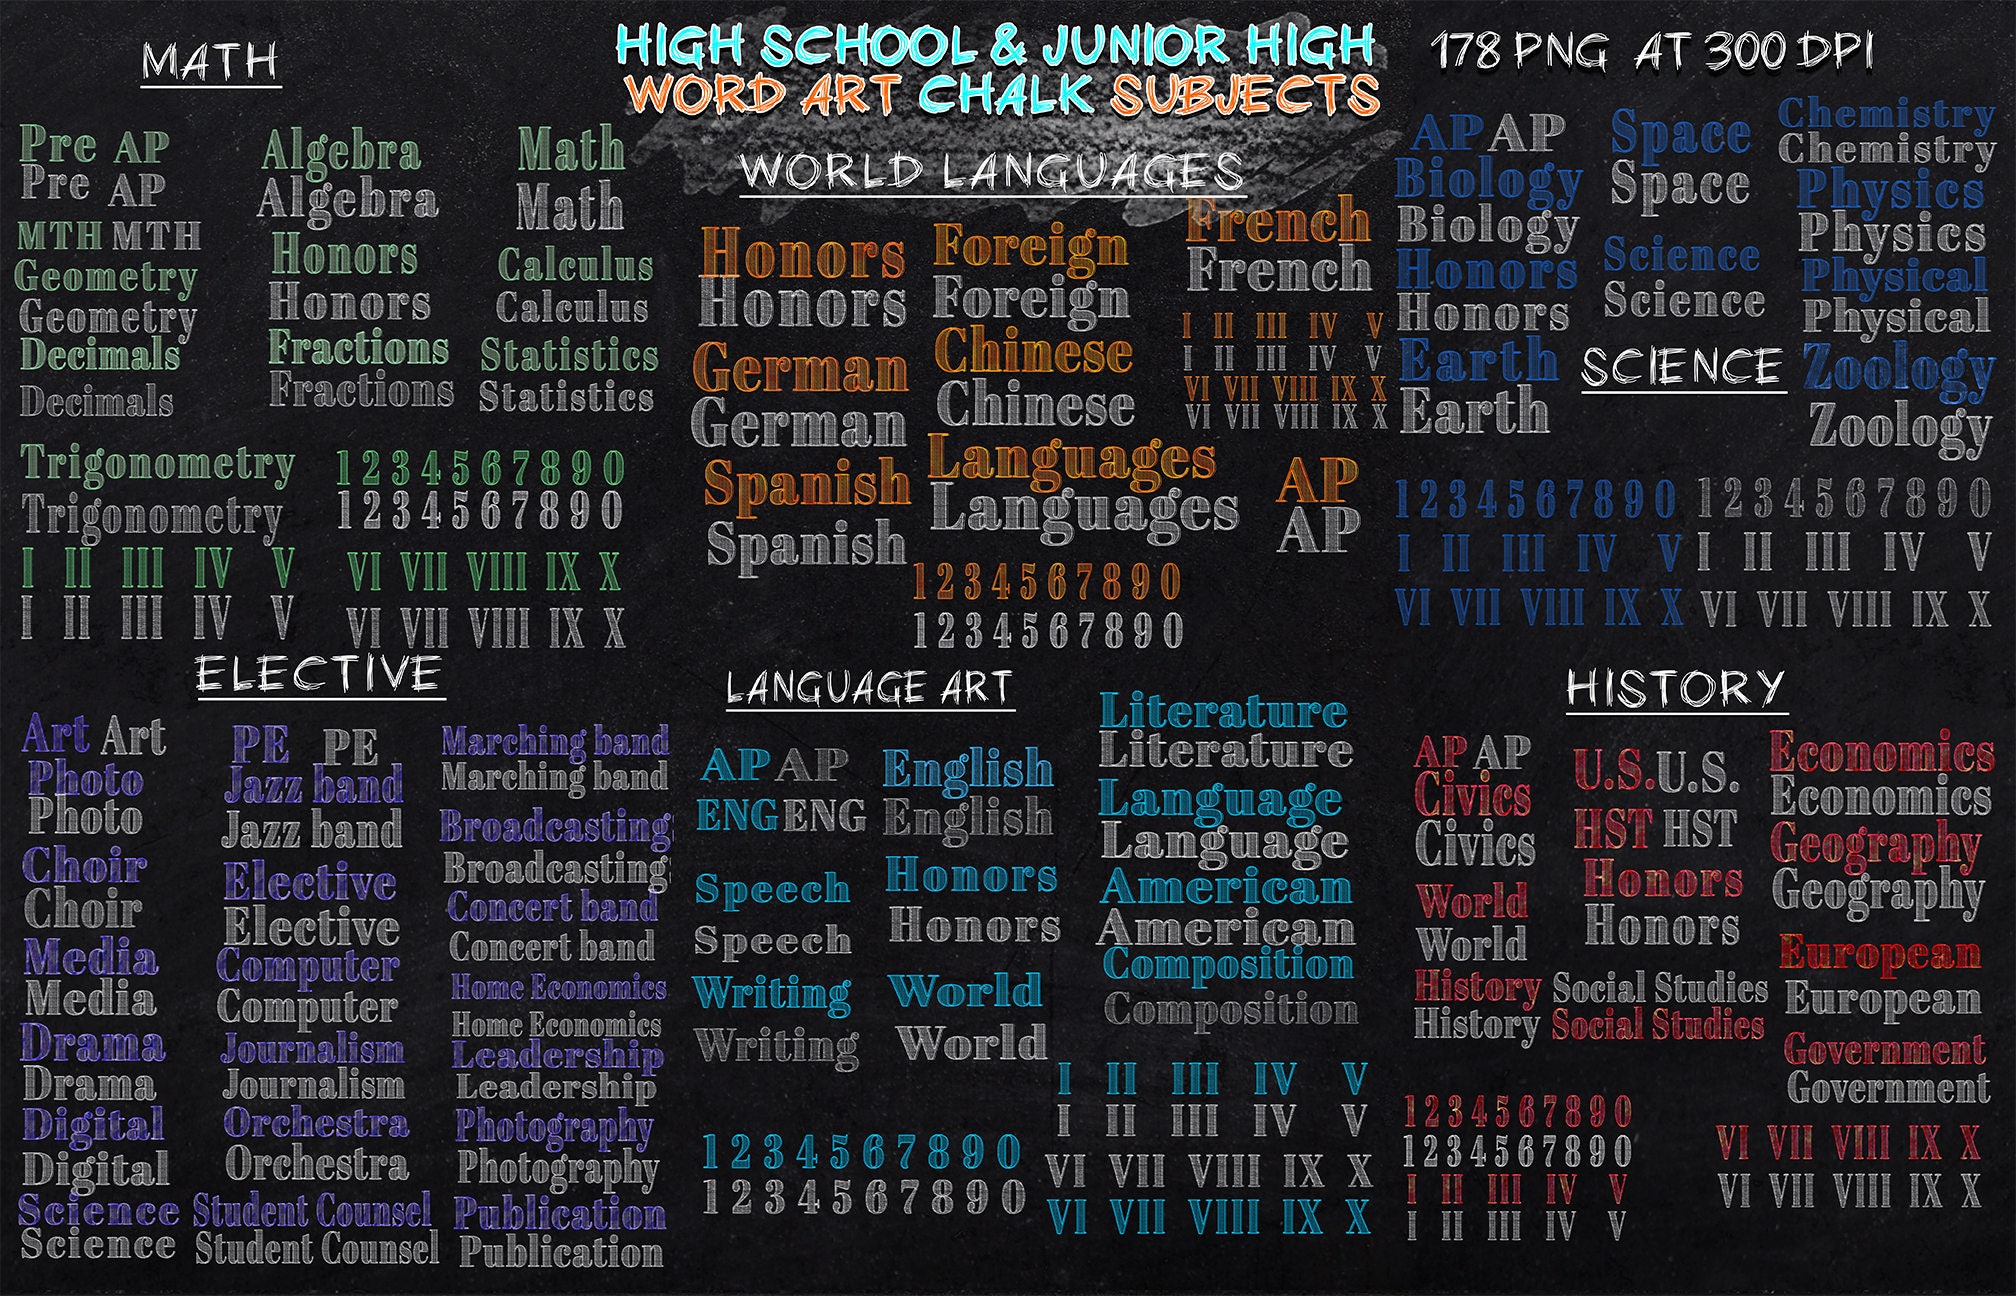 HIGH SCHOOL & JUNIOR HIGH
WORD ART CHALK SUBJECTS
178 PNG AT 300 DPI
MATH
Pre AP
Pre AP
MTH MTH
Geometry
Geometry
Decimals
Decimals
Algebra
Algebra
Honors
Honors
Fractions
Fractions
Math
Math
Calculus
Calculus
Statistics
Statistics
Trigonometry
Trigonometry
1 2 3 4 5 6 7 8 9 0
1 2 3 4 5 6 7 8 9 0
I II III IV V
I II III IV V
VI VII VIII IX X
VI VII VIII IX X
WORLD LANGUAGES
Honors
Honors
German
German
Spanish
Spanish
Foreign
Foreign
Chinese
Chinese
Languages
Languages
French
French
I II III IV V
I II III IV V
VI VII VIII IX X
VI VII VIII IX X
AP
AP
1 2 3 4 5 6 7 8 9 0
1 2 3 4 5 6 7 8 9 0
SCIENCE
AP AP
Biology
Biology
Honors
Honors
Earth
Earth
Space
Space
Science
Science
Chemistry
Chemistry
Physics
Physics
Physical
Physical
Zoology
Zoology
1 2 3 4 5 6 7 8 9 0 1 2 3 4 5 6 7 8 9 0
I II III IV V I II III IV V
VI VII VIII IX X VI VII VIII IX X
ELECTIVE
Art Art
Photo
Photo
Choir
Choir
Media
Media
Drama
Drama
Digital
Digital
Science
Science
PE PE
Jazz band
Jazz band
Elective
Elective
Computer
Computer
Journalism
Journalism
Orchestra
Orchestra
Student Counsel
Student Counsel
Marching band
Marching band
Broadcasting
Broadcasting
Concert band
Concert band
Home Economics
Home Economics
Leadership
Leadership
Photography
Photography
Publication
Publication
LANGUAGE ART
AP AP
ENG ENG
Speech
Speech
Writing
Writing
English
English
Honors
Honors
World
World
Literature
Literature
Language
Language
American
American
Composition
Composition
1 2 3 4 5 6 7 8 9 0
1 2 3 4 5 6 7 8 9 0
I II III IV V
I II III IV V
VI VII VIII IX X
VI VII VIII IX X
HISTORY
AP AP
Civics
Civics
World
World
History
History
U.S. U.S.
HST HST
Honors
Honors
Social Studies
Social Studies
Economics
Economics
Geography
Geography
European
European
Government
Government
1 2 3 4 5 6 7 8 9 0
1 2 3 4 5 6 7 8 9 0
I II III IV V
I II III IV V
VI VII VIII IX X
VI VII VIII IX X